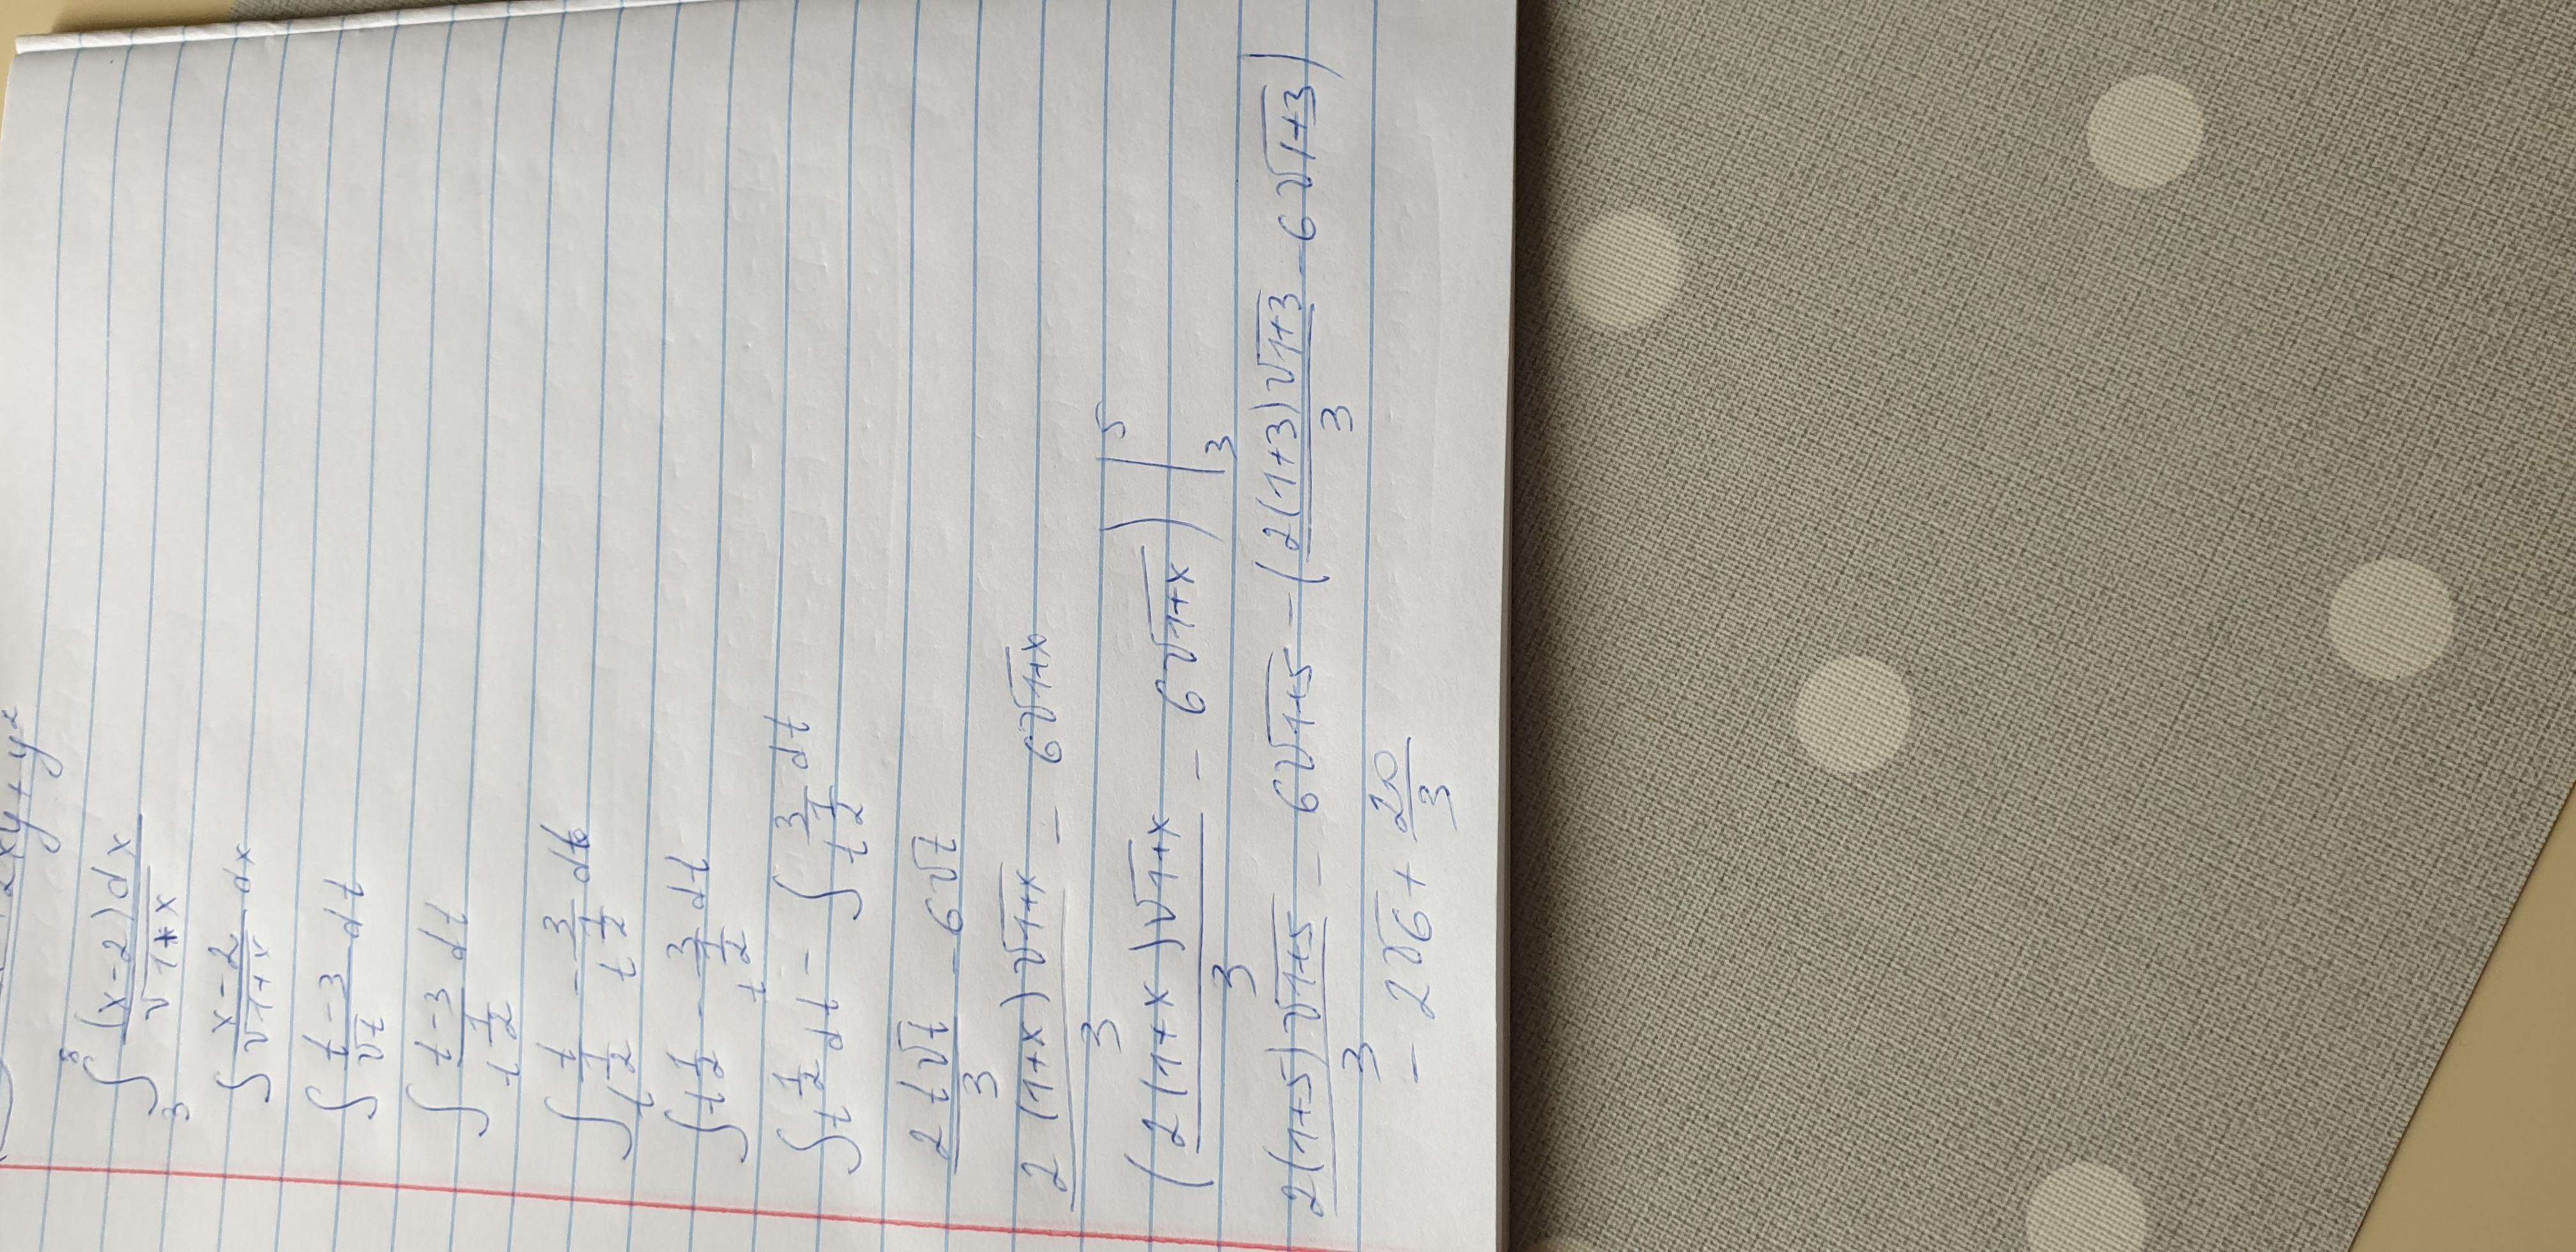 2xy + y²
∫₃⁸ (x-2)dx / √1+x
∫ x-2 / √1+x dx
∫ t-3 / √t dt
∫ t-3 / t^(1/2) dt
∫ t / t^(1/2) - 3 / t^(1/2) dt
∫ t^(1/2) - 3 / t^(1/2) dt
∫ t^(1/2) dt - ∫ 3 / t^(1/2) dt
2t√t / 3 - 6√t
2(1+x)√1+x / 3 - 6√1+x
(2(1+x)√1+x / 3 - 6√1+x) |₃⁵
2(1+5)√1+5 / 3 - 6√1+5 - (2(1+3)√1+3 / 3 - 6√1+3)
- 2√6 + 20 / 3